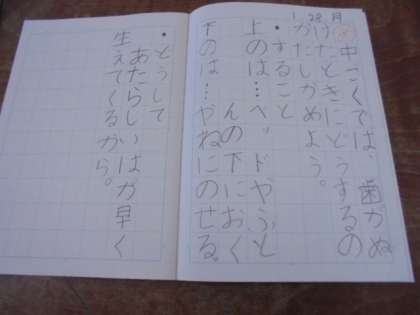 1. 28. 月
中ごくでは、歯がぬ
けたときにどうするの
かたしかめよう。
・すること
上のは…ベッドやふと
んの下におく
下のは…やねにのせる。
・どうして
あたらしいはが早く
生えてくるから。